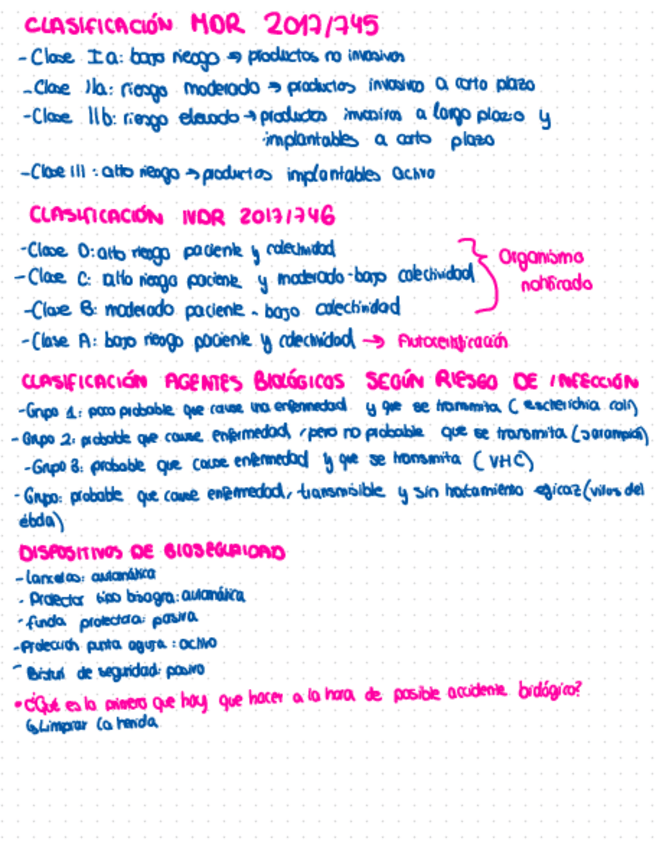 CLASIFICACIÓN MDR 2017/745
- Clase Ia: bajo riesgo → productos no invasivos
- Clase IIa: riesgo moderado → productos invasivo a corto plazo
- Clase IIb: riesgo elevado → productos invasivos a largo plazo y
implantables a corto plazo
- Clase III: alto riesgo → productos implantables activo
CLASIFICACIÓN IVDR 2017/746
- Clase D: alto riesgo paciente y colectividad
- Clase C: alto riesgo paciente y moderado-bajo colectividad
- Clase B: moderado paciente - bajo colectividad
Organismo
notificado
- Clase A: bajo riesgo paciente y colectividad → Autocertificación
CLASIFICACIÓN AGENTES BIOLÓGICOS SEGÚN RIESGO DE INFECCIÓN
- Grupo 1: poco probable que cause una enfermedad y que se transmita (escherichia coli)
- Grupo 2: probable que cause enfermedad, pero no probable que se transmita (sarampión)
- Grupo 3: probable que cause enfermedad y que se transmita (VHC)
- Grupo: probable que cause enfermedad, transmisible y sin tratamiento eficaz (virus del
ébola)
DISPOSITIVOS DE BIOSEGURIDAD
- Lancetas: automática
- Protector tipo bisagra: automática
- funda protectora: pasiva
- Protección punta aguja: activo
- Bisturí de seguridad: pasivo
• ¿Qué es lo primero que hay que hacer a la hora de posible accidente biológico?
↳ Limpiar la herida